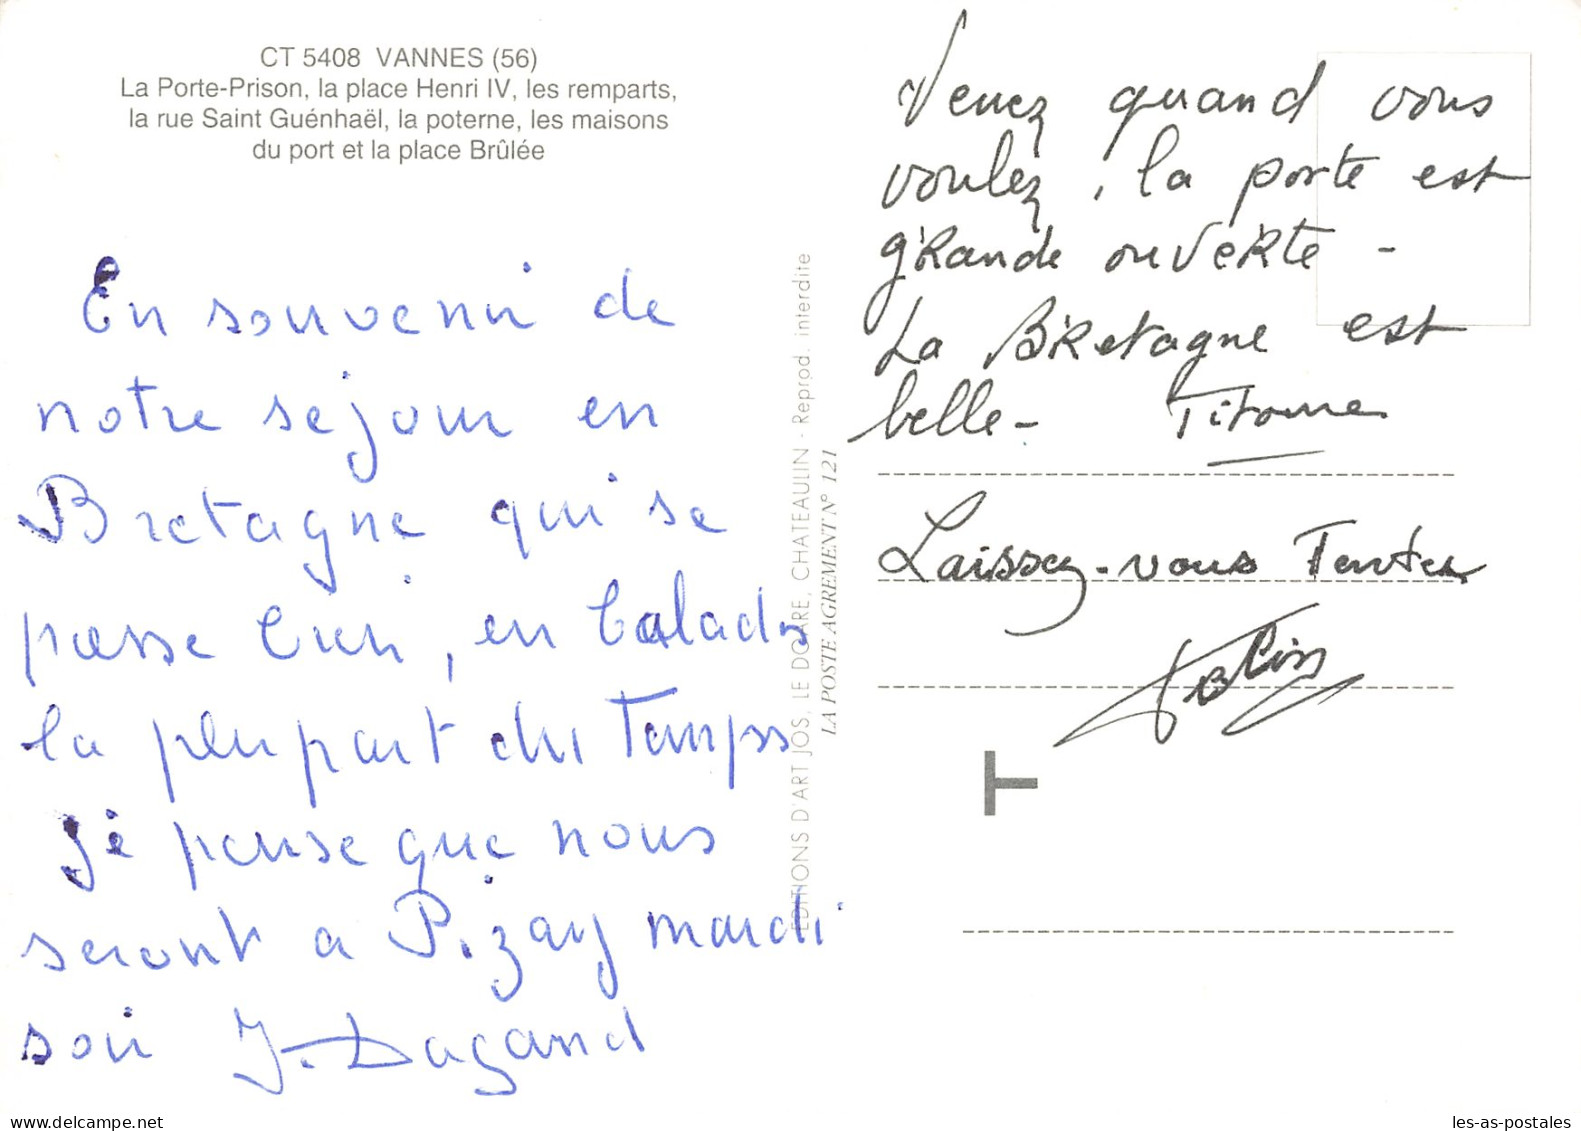 CT 5408 VANNES (56)
La Porte-Prison, la place Henri IV, les remparts,
la rue Saint Guénhaël, la poterne, les maisons
du port et la place Brûlée
En souvenir de
notre séjour en
Bretagne qui se
passe bien, en balades
la plupart du temps
Je pense que nous
seront a Pizay mardi
soir J. Dagand
EDITIONS D'ART JOS, LE DOARE, CHATEAULIN - Reprod. interdite
LA POSTE AGREMENT N° 121
Venez quand vous
voulez, la porte est
grande ouverte -
La Bretagne est
belle -
Laissez-vous Tenter
T
les-as-postales